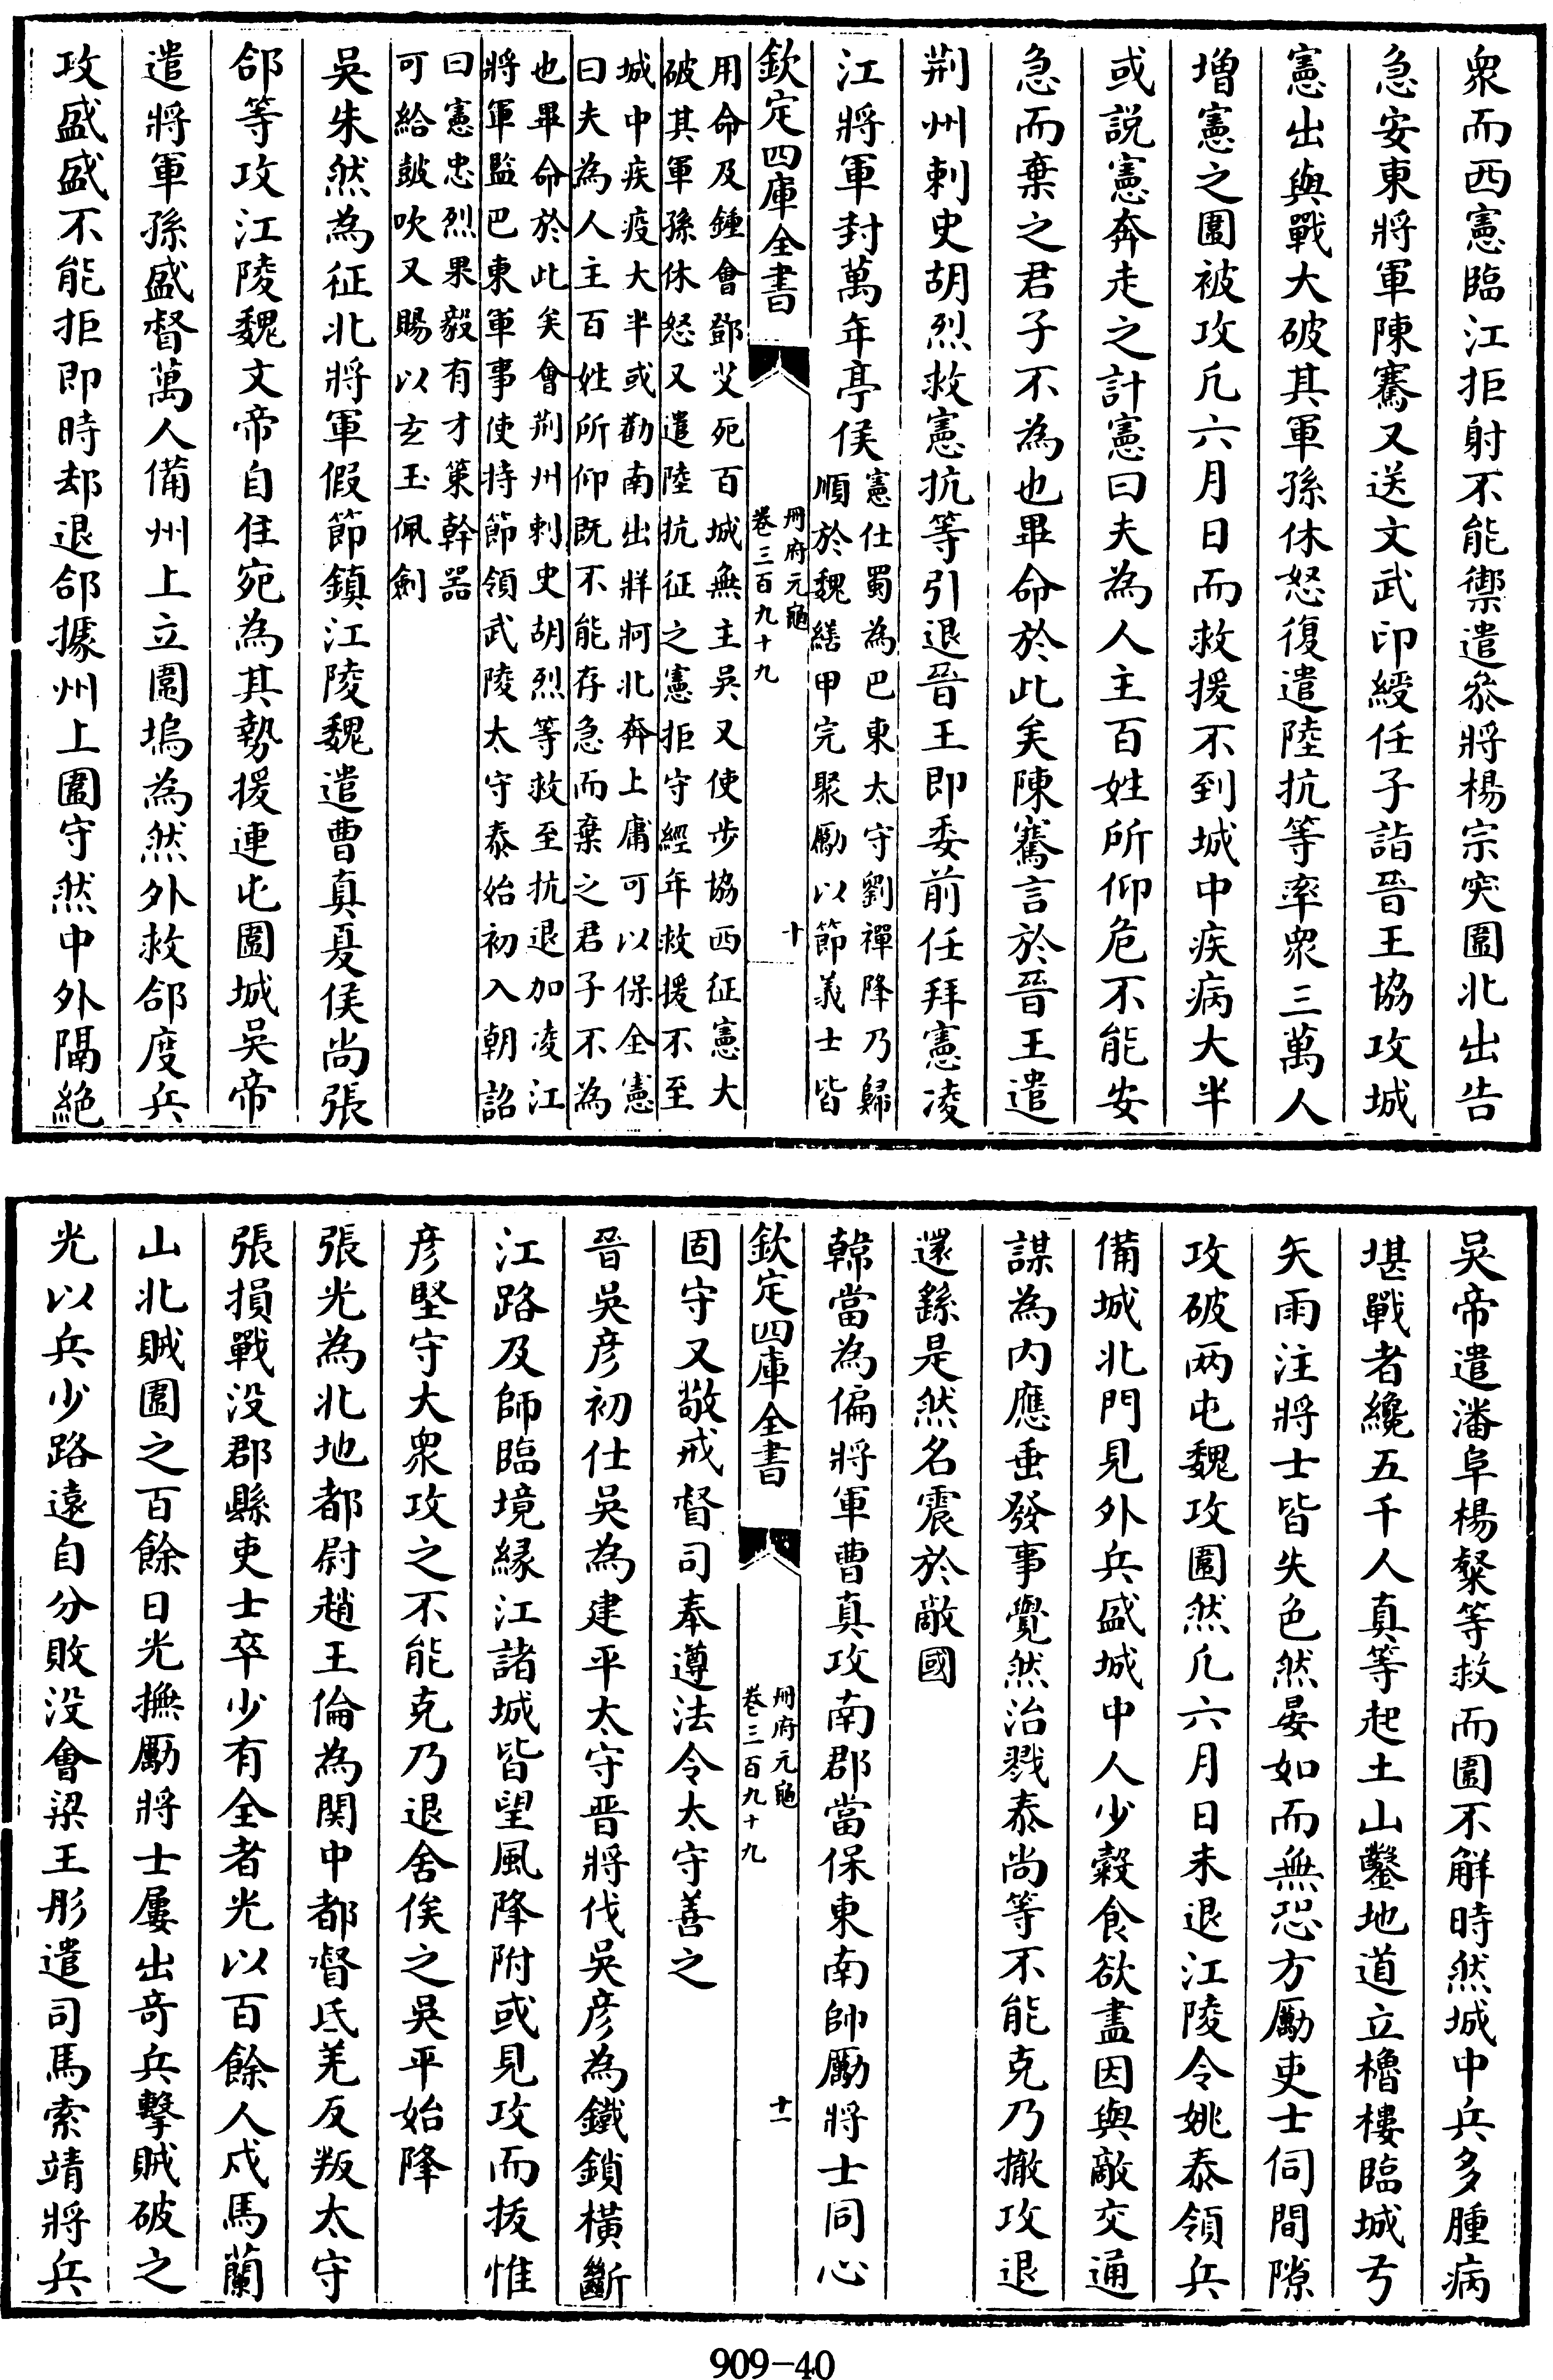 衆而西憲臨江拒射不能禦遣叅將楊宗突圍北出告
急安東將軍陳騫又送文武印綬任子詣晉王協攻城
憲出與戰大破其軍孫休怒復遣陸抗等率衆三萬人
增憲之圍被攻凡六月日而救援不到城中疾病大半
或説憲奔走之計憲曰夫為人主百姓所仰危不能安
急而棄之君子不為也畢命於此矣陳騫言於晉王遣
荆州刺史胡烈救憲抗等引退晉王即委前任拜憲凌
江將軍封萬年亭侯憲仕蜀為巴東太守劉禪降乃歸
順於魏繕甲完聚勵以節義士皆
欽定四庫全書
冊府元龜
卷三百九十九
十
用命及鍾會鄧艾死百城無主吳又使步協西征憲大
破其軍孫休怒又遣陸抗征之憲拒守經年救援不至
城中疾疫大半或勸南出牂牁北奔上庸可以保全憲
曰夫為人主百姓所仰既不能存急而棄之君子不為
也畢命於此矣會荆州刺史胡烈等救至抗退加凌江
將軍監巴東軍事使持節領武陵太守泰始初入朝詔
曰憲忠烈果毅有才策幹器
可給鼓吹又賜以玄玉佩劍
吳朱然為征北將軍假節鎮江陵魏遣曹真夏侯尚張
郃等攻江陵魏文帝自住宛為其勢援連屯圍城吳帝
遣將軍孫盛督萬人備州上立圍塢為然外救郃度兵
攻盛盛不能拒即時却退郃據州上圍守然中外隔絶
吳帝遣潘阜楊粲等救而圍不解時然城中兵多腫病
堪戰者纔五千人真等起土山鑿地道立櫓樓臨城弓
矢雨注將士皆失色然晏如而無恐方勵吏士伺間隙
攻破两屯魏攻圍然凡六月日未退江陵令姚泰領兵
備城北門見外兵盛城中人少糓食欲盡因與敵交通
謀為内應垂發事覺然治戮泰尚等不能克乃撤攻退
還繇是然名震於敵國
韓當為偏將軍曹真攻南郡當保東南帥勵將士同心
欽定四庫全書
冊府元龜
卷三百九十九
十一
固守又敬戒督司奉遵法令太守善之
晉吳彦初仕吳為建平太守晋將伐吳彦為鐵鎖橫斷
江路及師臨境緣江諸城皆望風降附或見攻而拔惟
彦堅守大衆攻之不能克乃退舍俟之吳平始降
張光為北地都尉趙王倫為関中都督氐羌反叛太守
張損戰没郡縣吏士卒少有全者光以百餘人戍馬蘭
山北賊圍之百餘日光撫勵將士屢出奇兵擊賊破之
光以兵少路遠自分敗没會梁王肜遣司馬索靖將兵
909-40